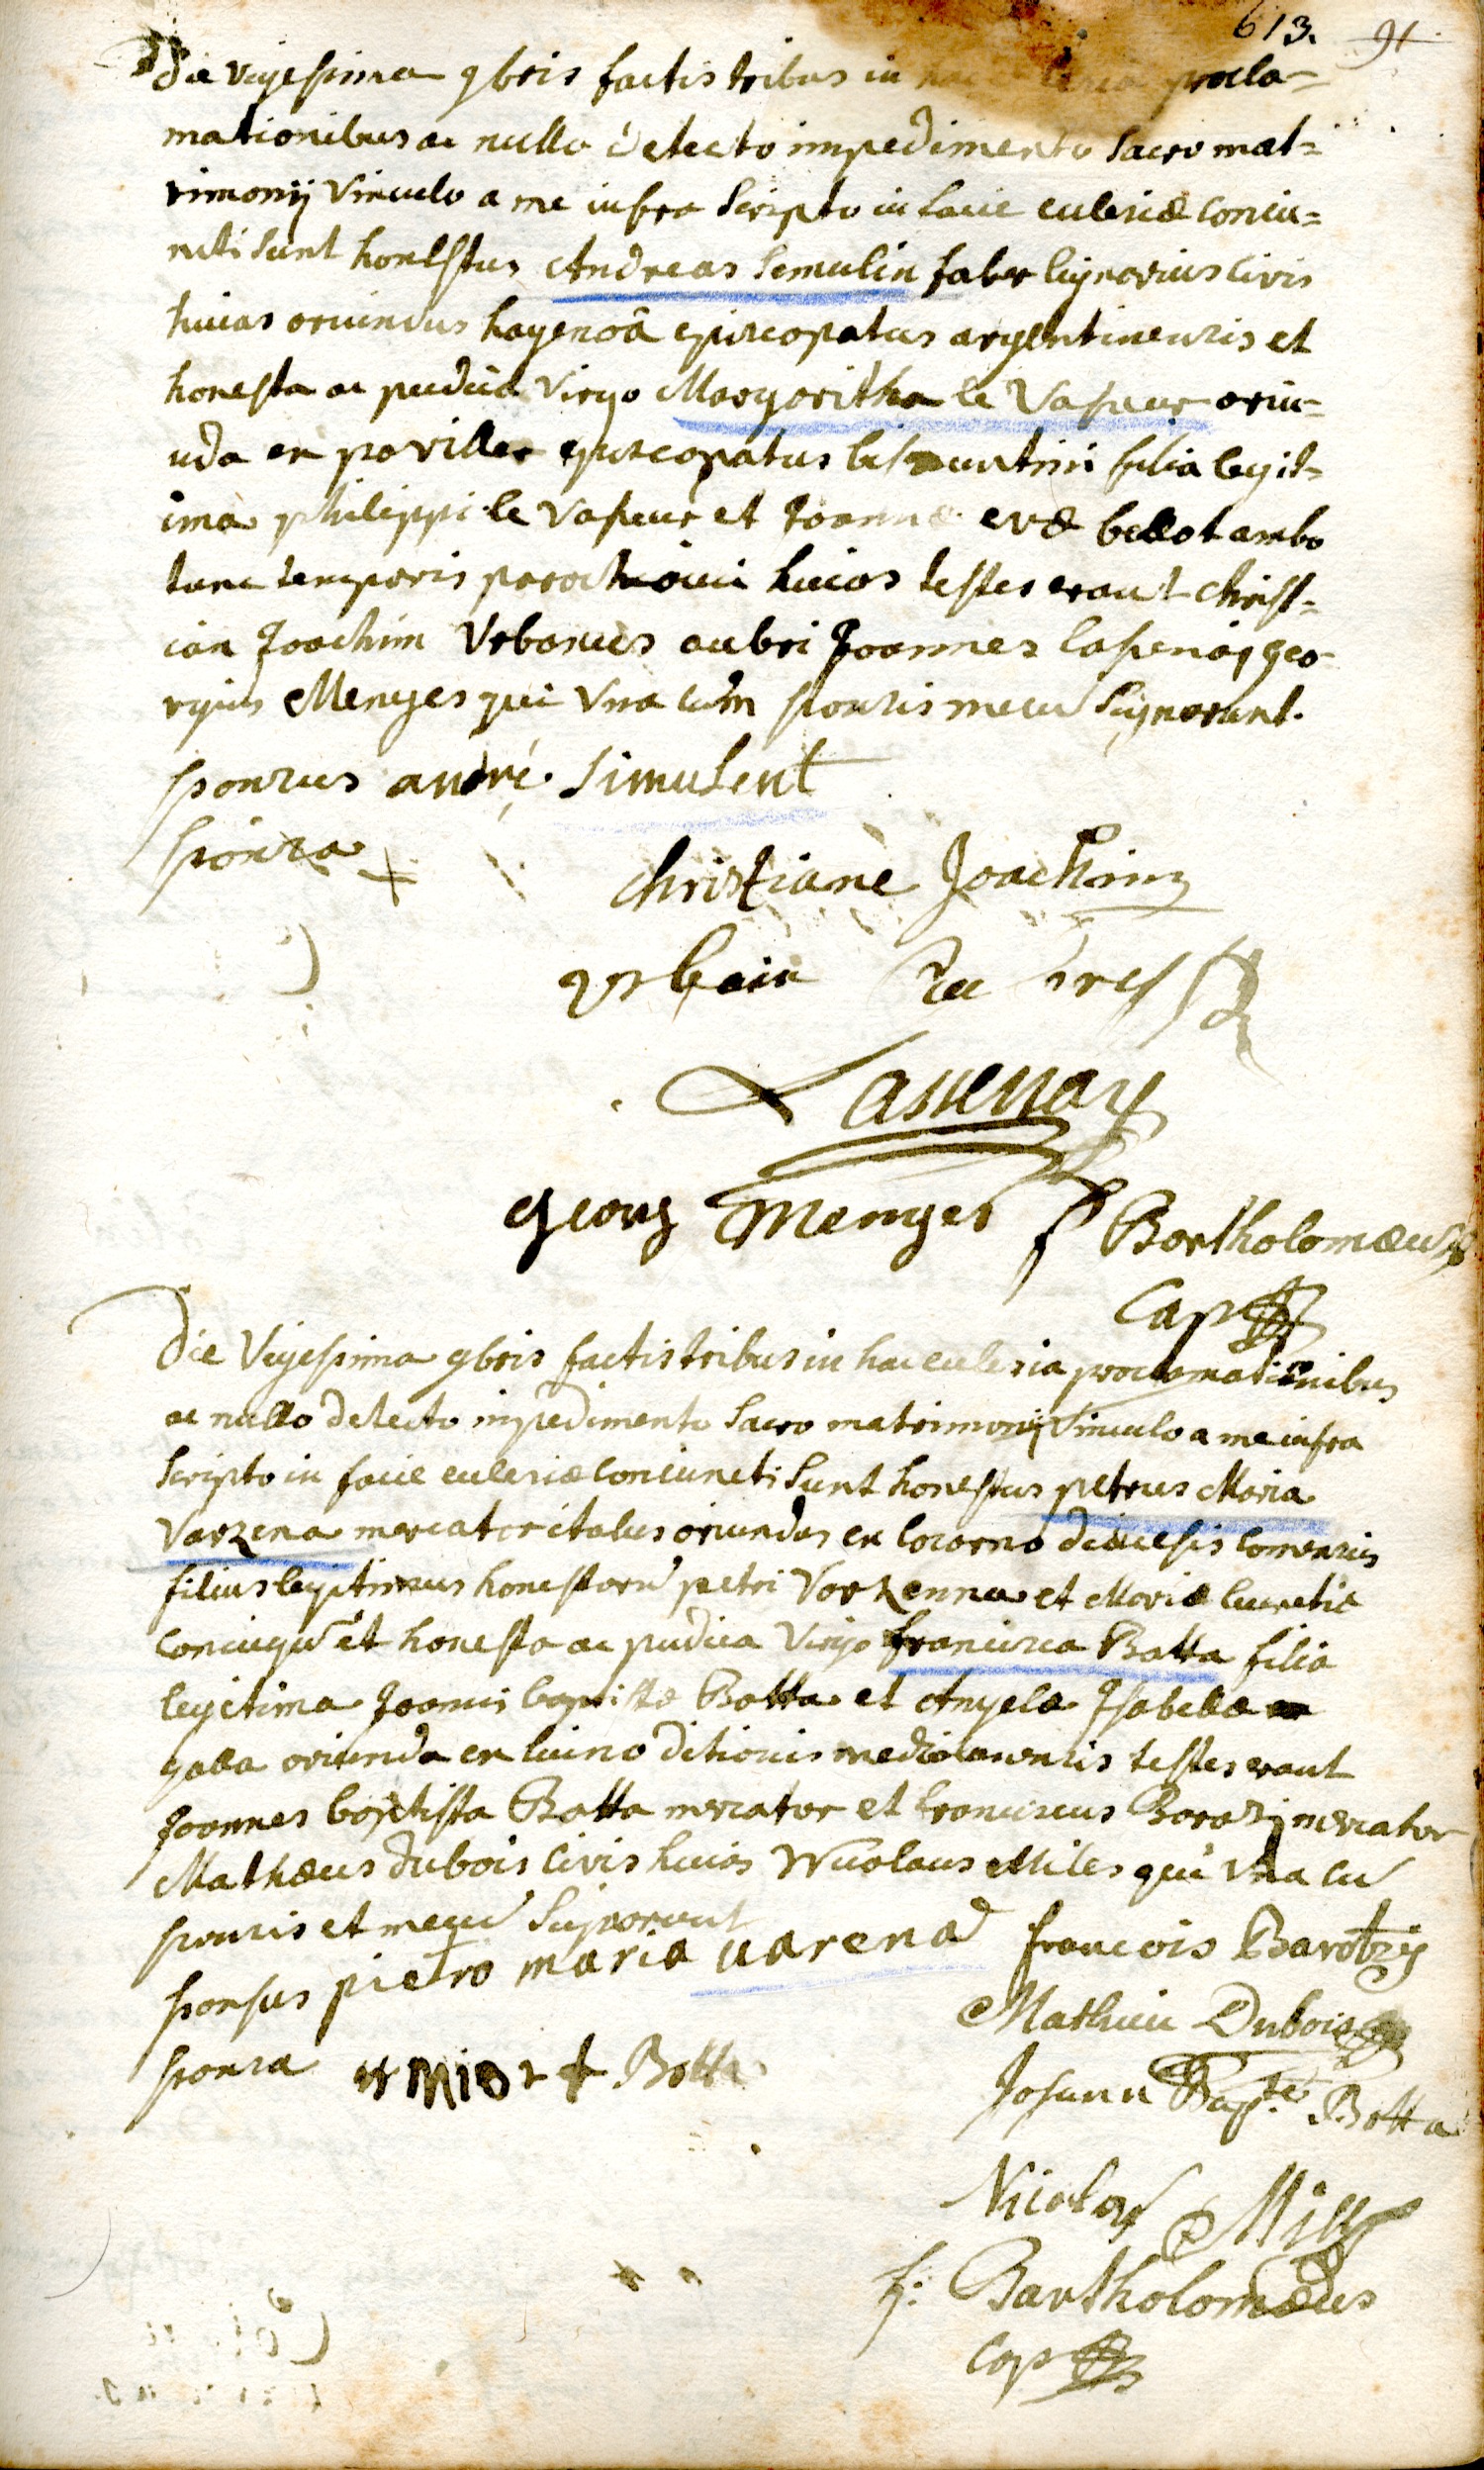 613. 91
Die vigesima 9bris factis tribus in hac procla-
mationibus ac nullo detecto impedimento sacro mat=
rimonij vinculo a me infra scripto in facie eclesiæ coniu=
ncti sunt honestus Andreas Semulin faber lignarius civis
huias oriundus hagenoâ episcopatus argentinensis et
honesta ac pudica virgo Margaritha le Vasseur oriu=
nda ex episcopatus filia legit=
ima philippi le Vasseur et Joannæ evæ bellot ambo
tunc temporis parochiani huias testes erant christ=
ian Joachim Urbanus aubri Joannes lasenay geo-
rgius Menges qui una cum sponsis mecū signarunt.
sponsus andré simulent
sponsa +
christiane Joachim
urbain
Lassenay
georg Menges f Bartholomæus
Cap
Die Vigesima 9bris factis tribus in hac eclesia proclamationibus
ac nullo detecto impedimento sacro matrimonij vinculo a me infra
scripto in facie eclesiæ coniuncti sunt honestus petrus Maria
Varzena mercator italus oriundus ex locarno diœcesis comensis
filius legitimus honestorū petri Varzenna et Mariæ lucretiæ
coniugū et honesta ac pudica virgo francisca Botta filia
legitima Joannis baptistæ Botta et Angelæ Isabellæ
galla oriunda ex luino ditionis mediolanensis testes erant
Joannes baptista Botta mercator et franciscus Barozij mercator
Mathæus dubois civis huias Nicolaus Miles qui una cū
sponsis et mecū signarunt
sponsus pietro maria varena françois Barotzij
Mathieu Dubois
sponsa + Botta
Johann Bapte Botta
Nicolas Mill
f: Bartholomæus
cap